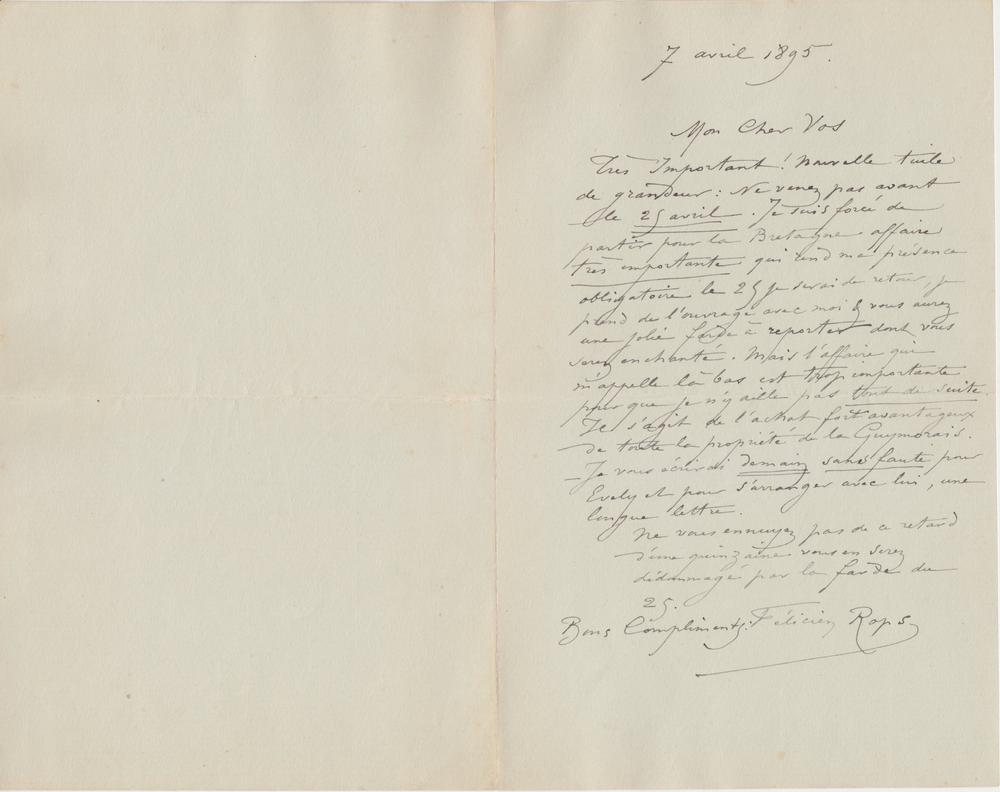 7 avril 1895.
Mon Cher Vos
Très Important ! Nouvelle tuile
de grandeur : Ne venez pas avant
le 25 avril. Je suis forcé de
partir pour la Bretagne affaire
très importante qui rend ma présence
obligatoire le 25 je serai de retour, je
prend de l'ouvrage avec moi & vous aurez
une jolie farde à reporter dont vous
serez enchanté. Mais l'affaire qui
m'appelle là bas est trop importante
pour que je n'y aille pas tout de suite.
Il s'agit de l'achat fort avantageux
de toute la propriété de la Guymorais.
– Je vous écrirai demain sans faute pour
Evely et pour s'arranger avec lui, une
longue lettre.
Ne vous ennuyez pas de ce retard
d'une quinzaine vous en serez
dédommagé par la farde du
25.
Bons Compliments. Félicien Rops